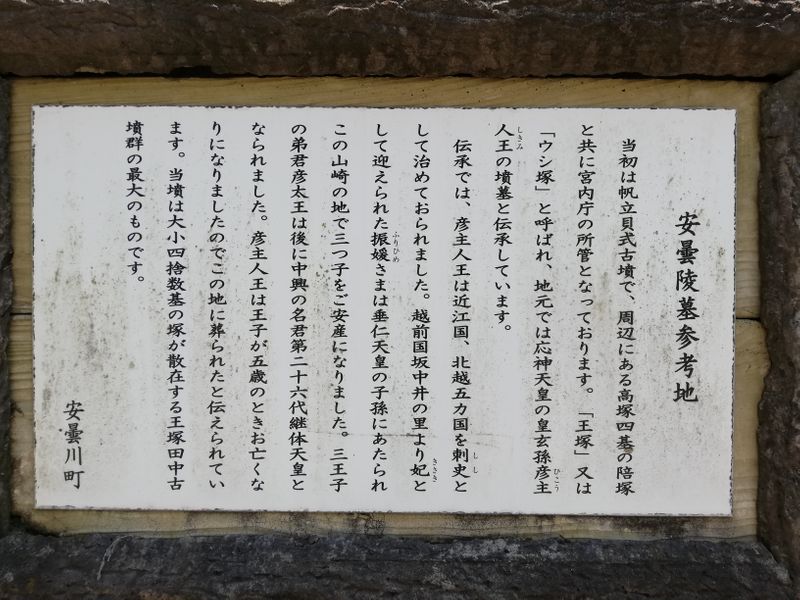 安曇陵墓参考地
当初は帆立貝式古墳で、周辺にある高塚四基の陪塚
と共に宮内庁の所管となっております。「王塚」又は
「ウシ塚」と呼ばれ、地元では応神天皇の皇玄孫彦主
ひこう
人王の墳墓と伝承しています。
しきみ
伝承では、彦主人王は近江国、北越五カ国を刺史と
しし
して治めておられました。越前国坂中井の里より妃と
きさき
して迎えられた振媛さまは垂仁天皇の子孫にあたられ
ふりひめ
この山崎の地で三つ子をご安産になりました。三王子
の弟君彦太王は後に中興の名君第二十六代継体天皇と
なられました。彦主人王は王子が五歳のときお亡くな
りになりましたのでこの地に葬られたと伝えられてい
ます。当墳は大小四捨数基の塚が散在する王塚田中古
墳群の最大のものです。
安曇川町